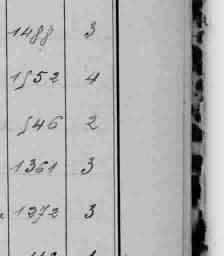 1488 3
1552 4
546 2
1361 3
1272 3